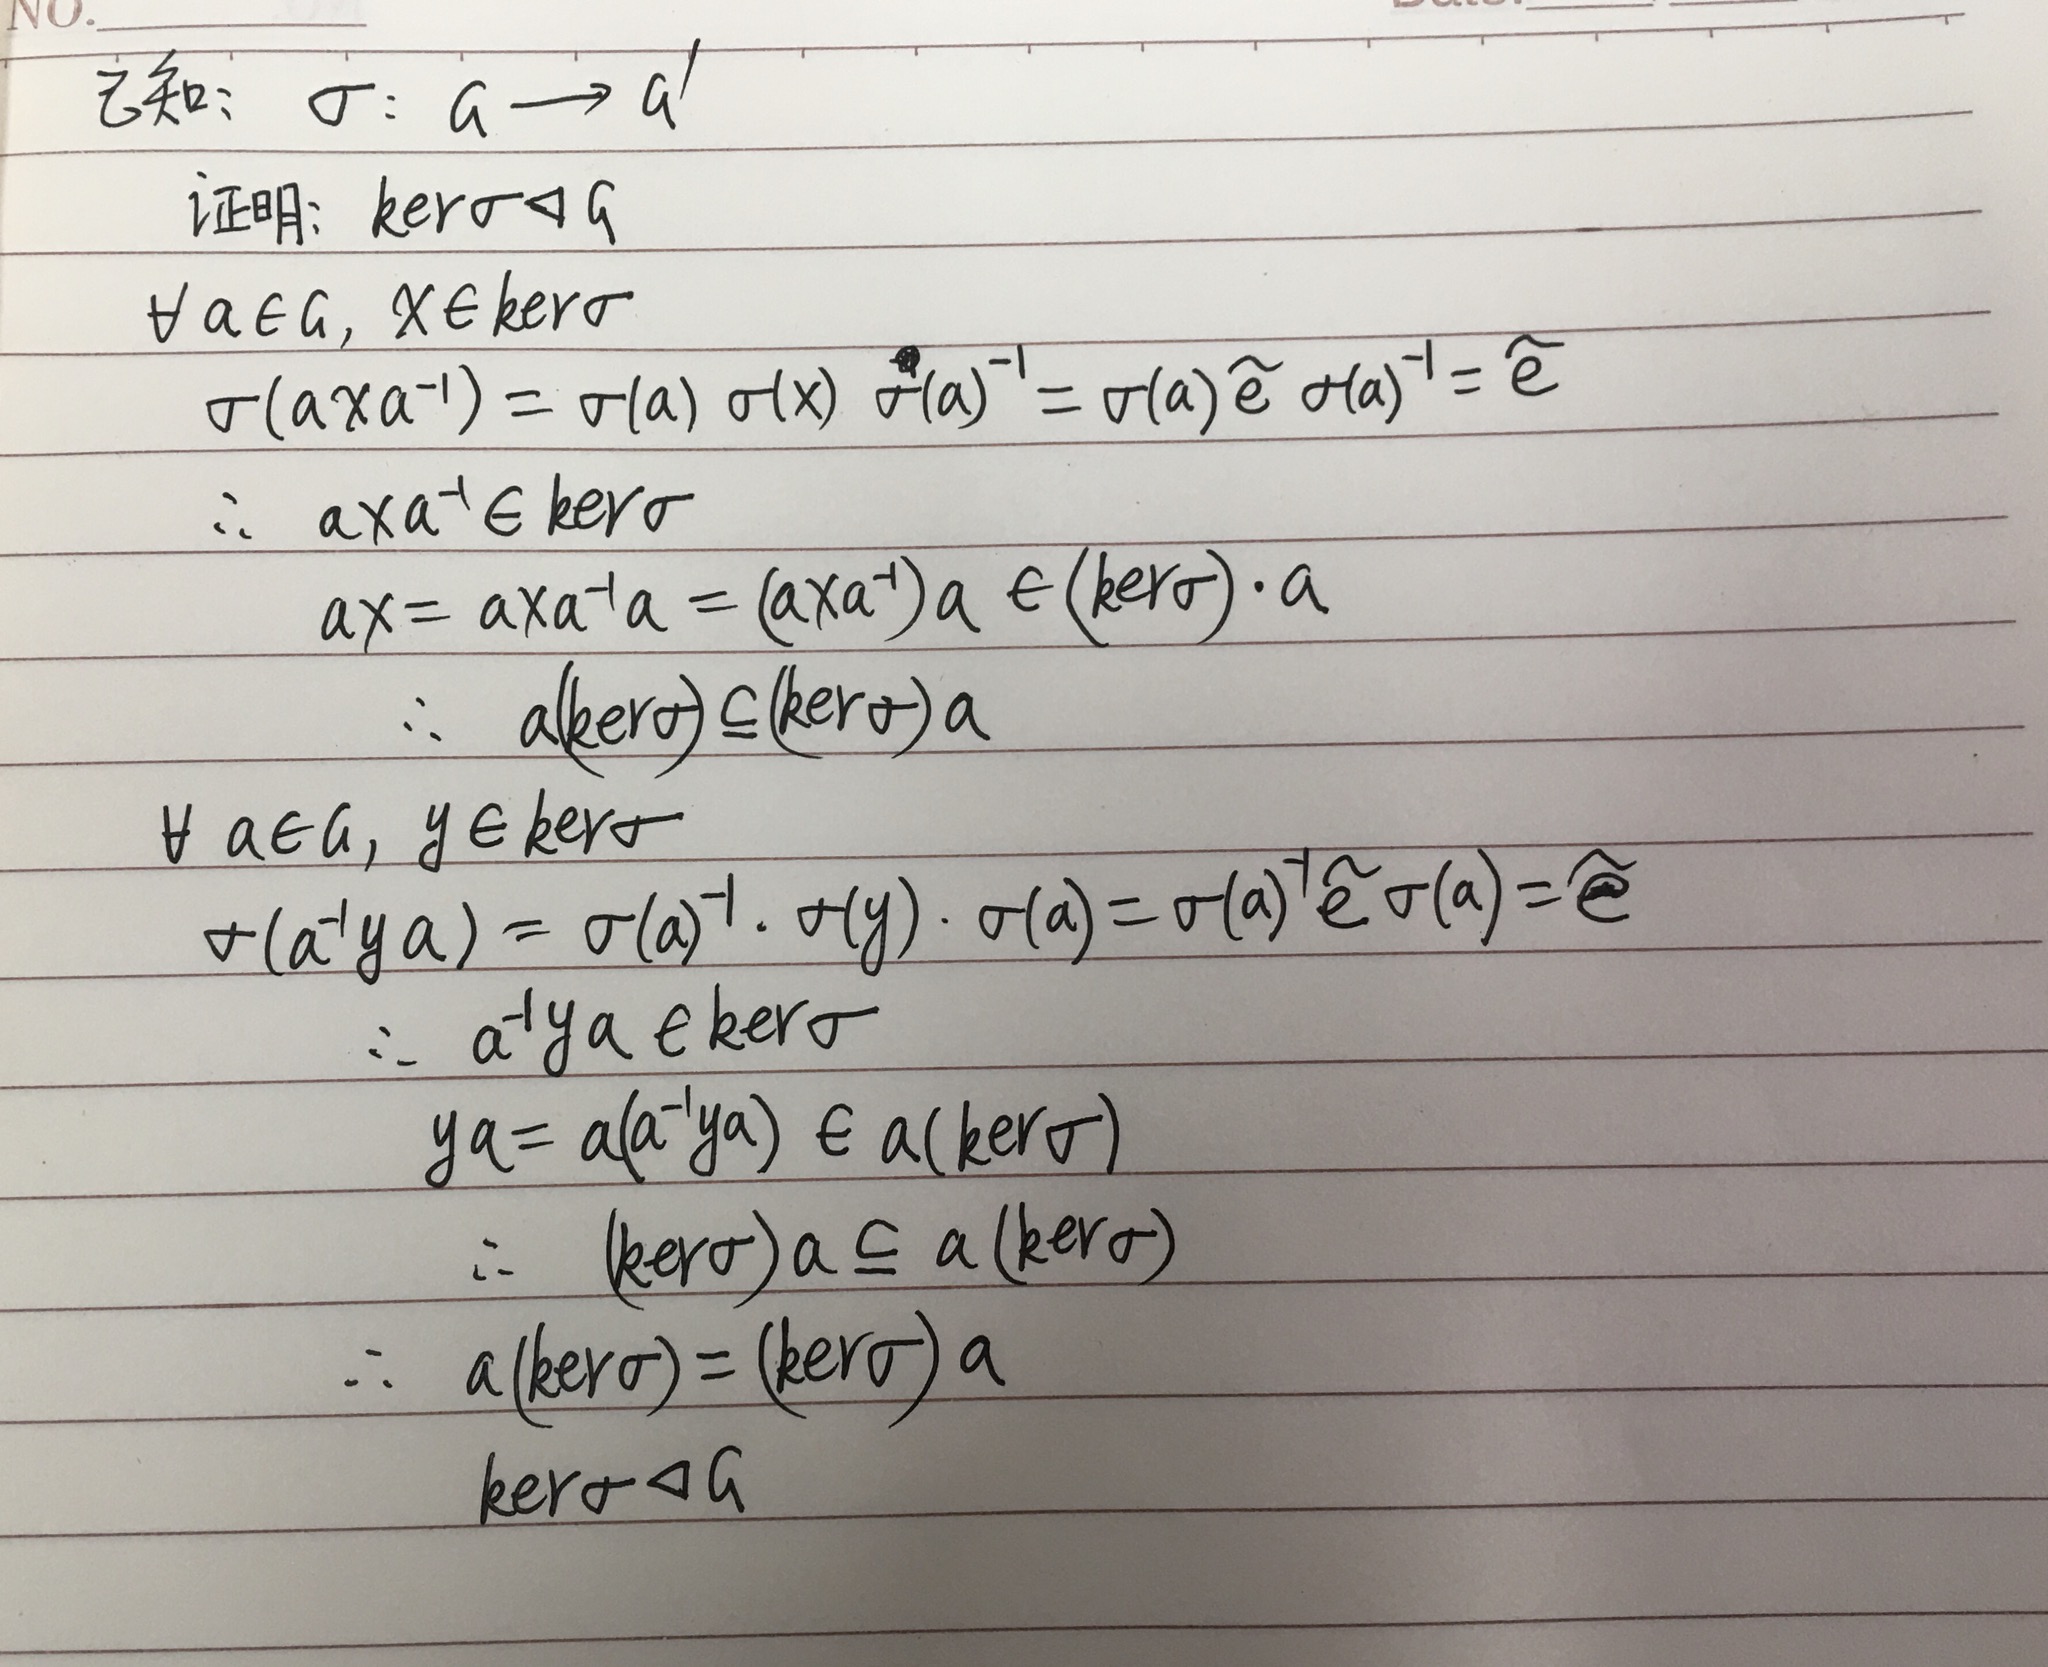 NO.
Date.
已知: σ: G → G'
证明: kerσ ◁ G
∀ a∈G, x∈kerσ
σ(axa⁻¹) = σ(a) σ(x) σ(a)⁻¹ = σ(a) ẽ σ(a)⁻¹ = ẽ
∴ axa⁻¹ ∈ kerσ
ax = axa⁻¹a = (axa⁻¹)a ∈ (kerσ)·a
∴ a(kerσ) ⊆ (kerσ)a
∀ a∈G, y∈kerσ
σ(a⁻¹ya) = σ(a)⁻¹·σ(y)·σ(a) = σ(a)⁻¹ ẽ σ(a) = ẽ
∴ a⁻¹ya ∈ kerσ
ya = a(a⁻¹ya) ∈ a(kerσ)
∴ (kerσ)a ⊆ a(kerσ)
∴ a(kerσ) = (kerσ)a
kerσ ◁ G